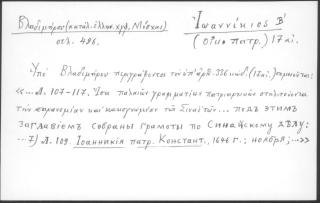 Βλαδιμήρου (κατάλ. ἑλλην. χφφ. Μόσχας)
σελ. 496.
Ἰωαννίκιος Β'
(Οἰκ. πατρ.) 17 αἰ.
Ὑπὸ Βλαδιμήρου περιγράφεται τοῦ ὑπ' ἀρθ. 336 κώδ. (17 αἰ.) σημειοῦται:
«...Λ. 107-117. Ἴσα παλαιῶν γραμματίων πατριαρχικῶν στηλιτεύοντα
τὴν παρανομίαν καὶ κακογνωμίαν τῶν Σιναϊτῶν... подъ этимъ
заглавіемъ собраны грамоты по Синайскому дѣлу:
...7) Л. 109. Іоанникія патр. Констант., 1646 г.; ноября;...»